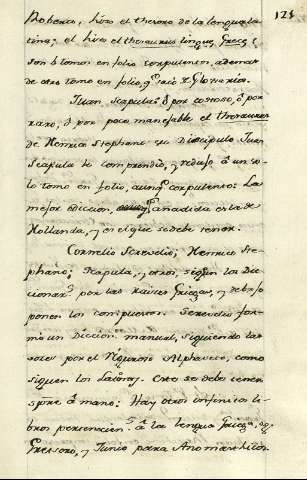 125
Roberto, hizo el thesoro de la lengua la
tina; el hizo el thesaurus linguæ Græcæ
son 6 tomos en folio corpulentos, ademas
de otro tomo en folio, q.e sacó
Juan Scapula: ó por costoso, ó por
raro, ó por poco manejable el thesaurus
de Henrico Stephano su Discipulo Juan
Scapula lo comprendió, y redujo á un so
lo tomo en folio, aunq.e corpulento: La
mejor Edicion, añadida es la de
Hollanda, y es el que se debe tener.
Cornelio Screvelio; Henrico Ste
phano; Scapula, y otros, siguen la Dic
cionar.o por las raices Griegas, y debajo
ponen los compuestos. Screvelio for
mó un Diccion. manual, siguiendo las
voces por el rigoroso Alphaveto, como
siguen los Latinos. Este se debe tener
spre á mano: Hay otros infinitos li
bros pertenecien.s á la lengua Griega, v.g.
Gretsero, y Junio para